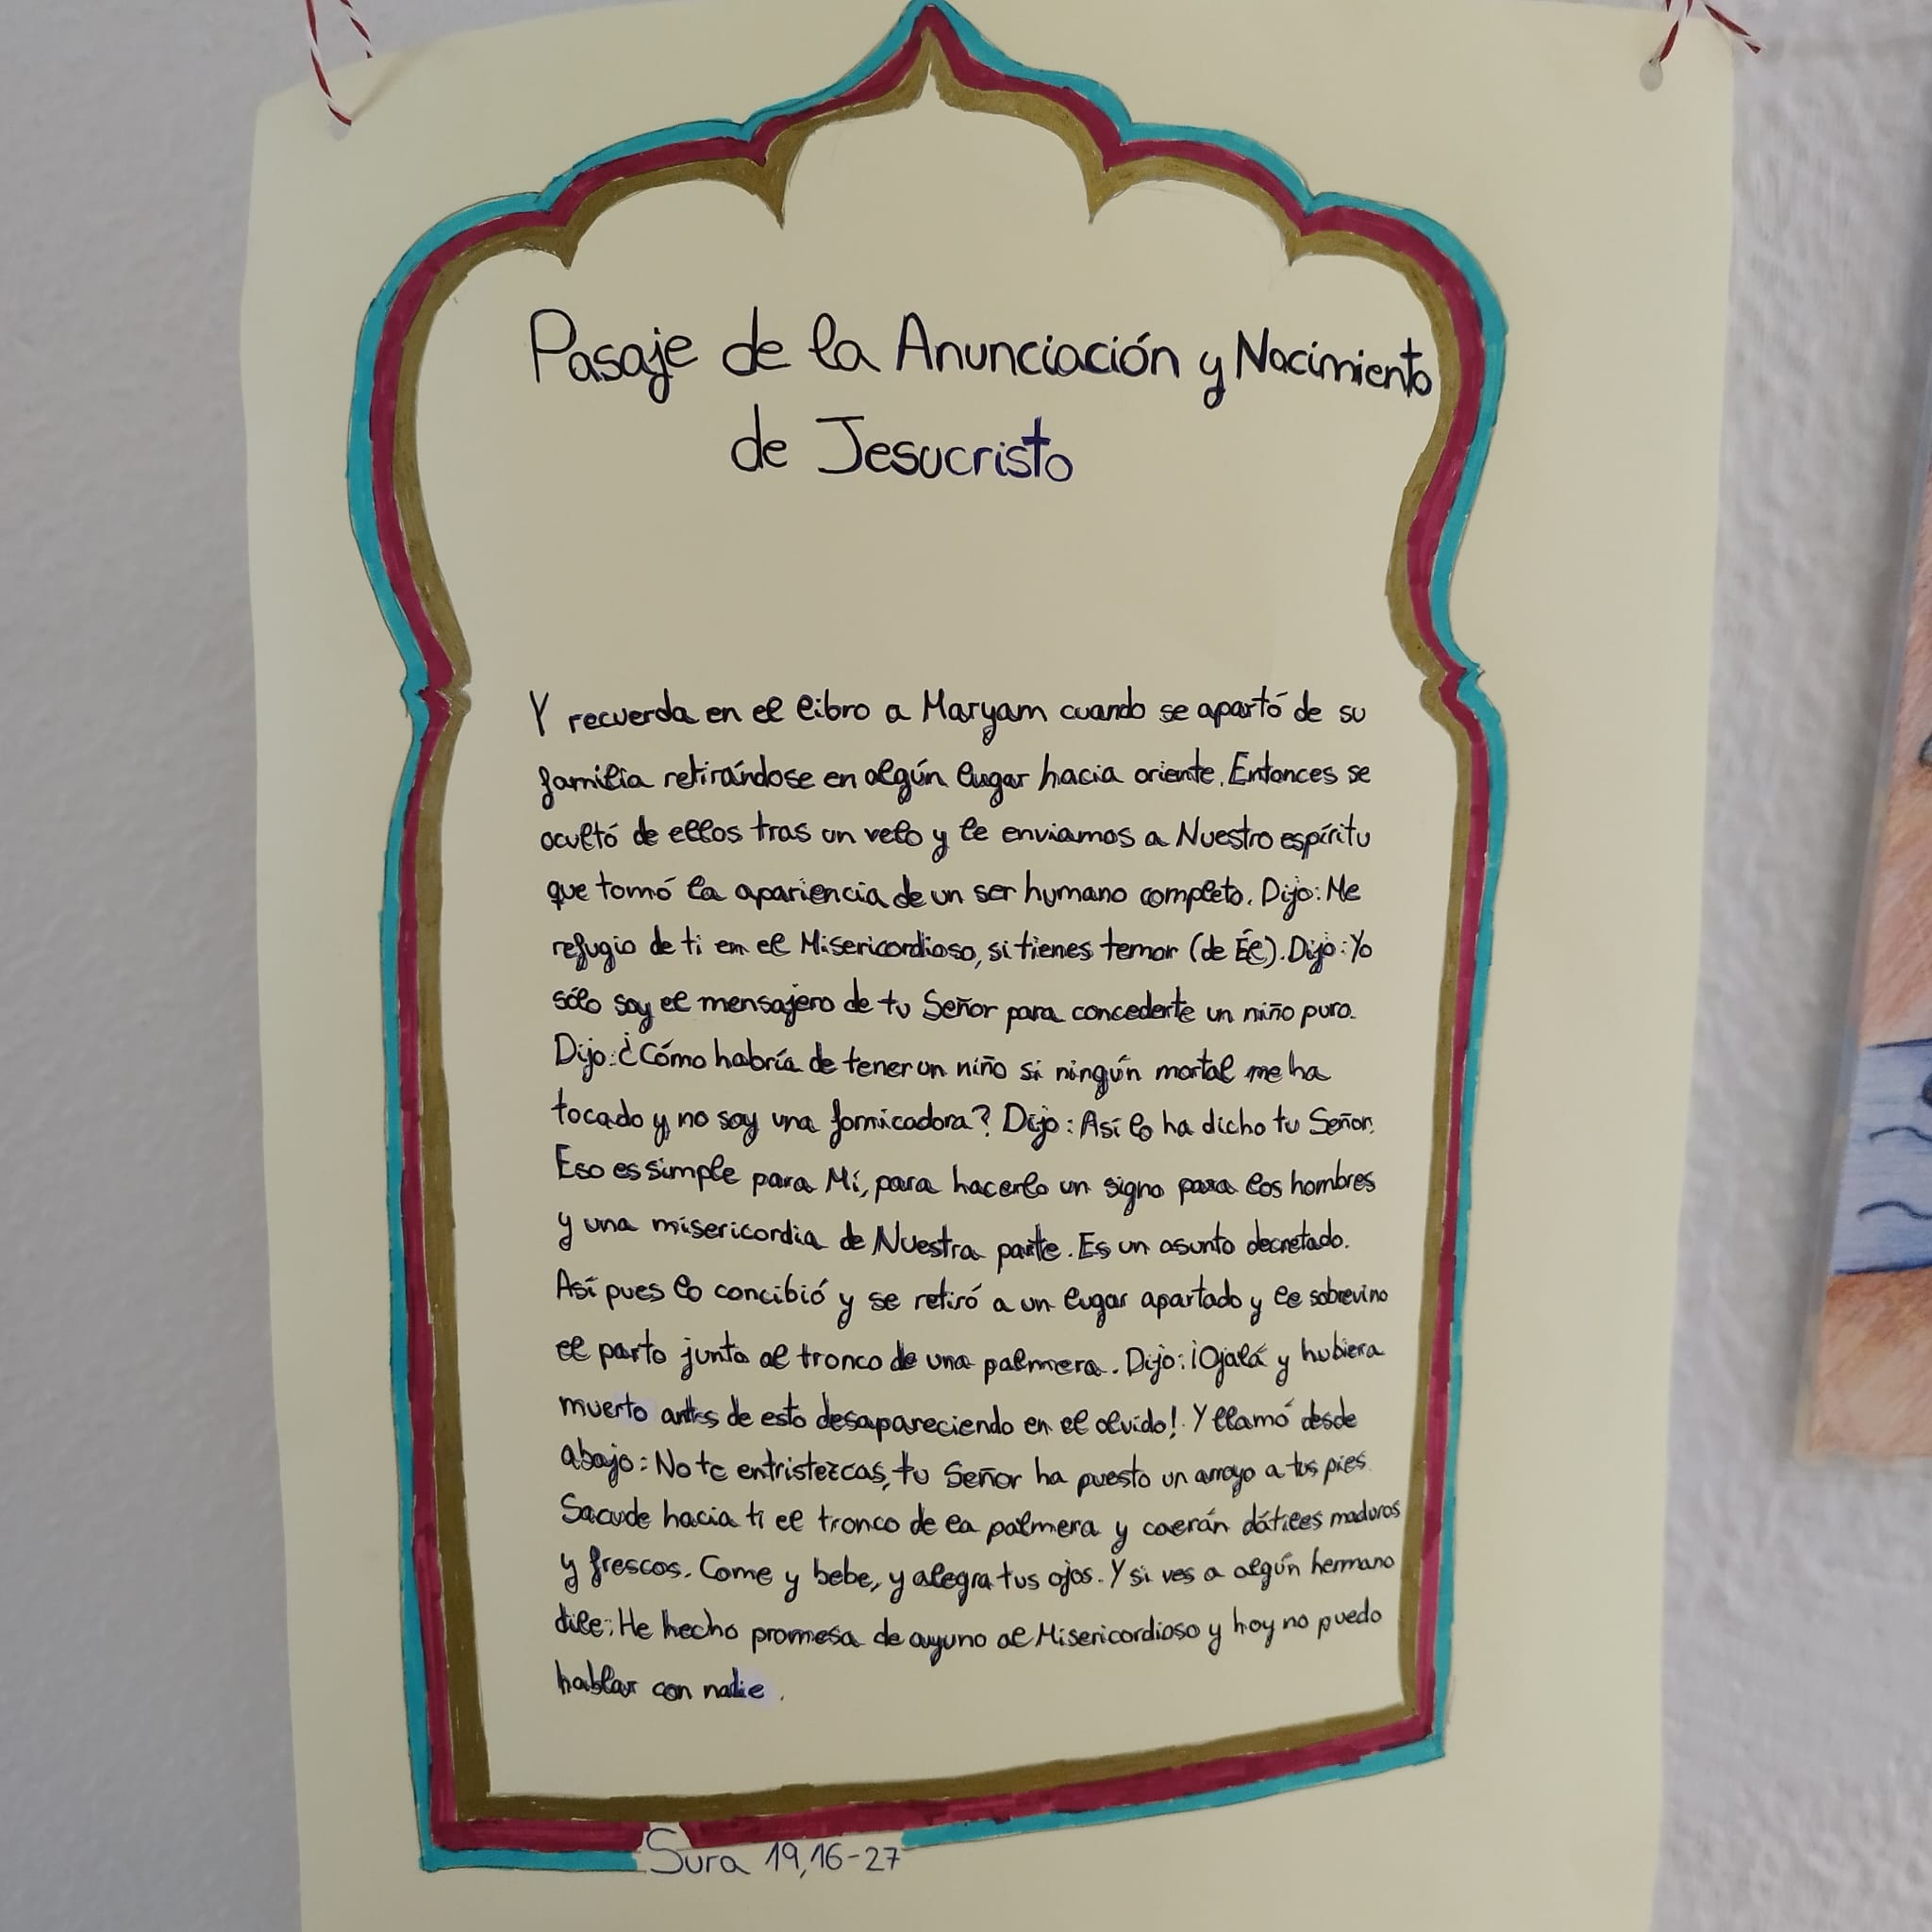 Pasaje de la Anunciación y Nacimiento
de Jesucristo
Y recuerda en el libro a Maryam cuando se apartó de su
familia retirándose en algún lugar hacia oriente. Entonces se
ocultó de ellos tras un velo y le enviamos a Nuestro espíritu
que tomó la apariencia de un ser humano completo. Dijo: Me
refugio de ti en el Misericordioso, si tienes temor (de Él). Dijo: Yo
sólo soy el mensajero de tu Señor para concederte un niño puro.
Dijo: ¿Cómo habría de tener un niño si ningún mortal me ha
tocado y no soy una fornicadora? Dijo: Así lo ha dicho tu Señor.
Eso es simple para Mí, para hacerlo un signo para los hombres
y una misericordia de Nuestra parte. Es un asunto decretado.
Así pues lo concibió y se retiró a un lugar apartado y le sobrevino
el parto junto al tronco de una palmera. Dijo: ¡Ojalá y hubiera
muerto antes de esto desapareciendo en el olvido!. Y llamó desde
abajo: No te entristezcas, tu Señor ha puesto un arroyo a tus pies.
Sacude hacia ti el tronco de la palmera y caerán dátiles maduros
y frescos. Come y bebe, y alegra tus ojos. Y si ves a algún hermano
dile: He hecho promesa de ayuno al Misericordioso y hoy no puedo
hablar con nadie.
Sura 19,16-27